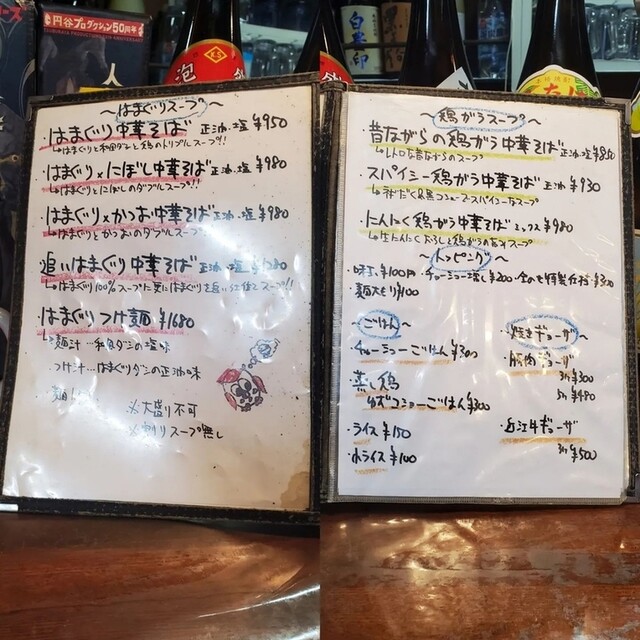 円谷プロダクション50周年
TSUBURAYA PRODUCTION 50TH ANNIVERSARY
泡
〜はまぐりスープ〜
はまぐり中華そば 正油・塩 ¥950
はまぐりと和風ダシと鶏のトリプルスープ!!
はまぐり×にぼし中華そば 正油・塩 ¥980
はまぐりとにぼしのダブルスープ!!
はまぐり×かつお中華そば 正油・塩 ¥980
はまぐりとかつおのダブルスープ!!
追いはまぐり中華そば 正油・塩
はまぐり100%スープに更にはまぐりを追いらせたスープ!!
はまぐりつけ麺 ¥1680
麺汁…和風ダシの塩味
つけ汁…はまぐりダシの正油味
※大盛り不可
※割りスープ無し
〜鶏がらスープ〜
・昔ながらの鶏がら中華そば 正油・塩 ¥850
レトロな昔ながらのスープ
・スパイシー鶏がら中華そば 正油 ¥930
黒コショースパイシーなスープ
・にんにく鶏がら中華そば ミックス ¥980
生にんにくおろしと鶏がらのスープ
〜トッピング〜
・味玉 ¥100円・チャーシュー増し ¥200
・麺大もり ¥100
〜ごはん〜
・チャーシューごはん ¥300
・蒸し鶏
ゆずコショーごはん ¥300
・ライス ¥150
・小ライス ¥100
・焼きギョーザ
・豚肉ギョーザ
3ヶ ¥300
5ヶ ¥480
・近江牛ギョーザ
3ヶ ¥500